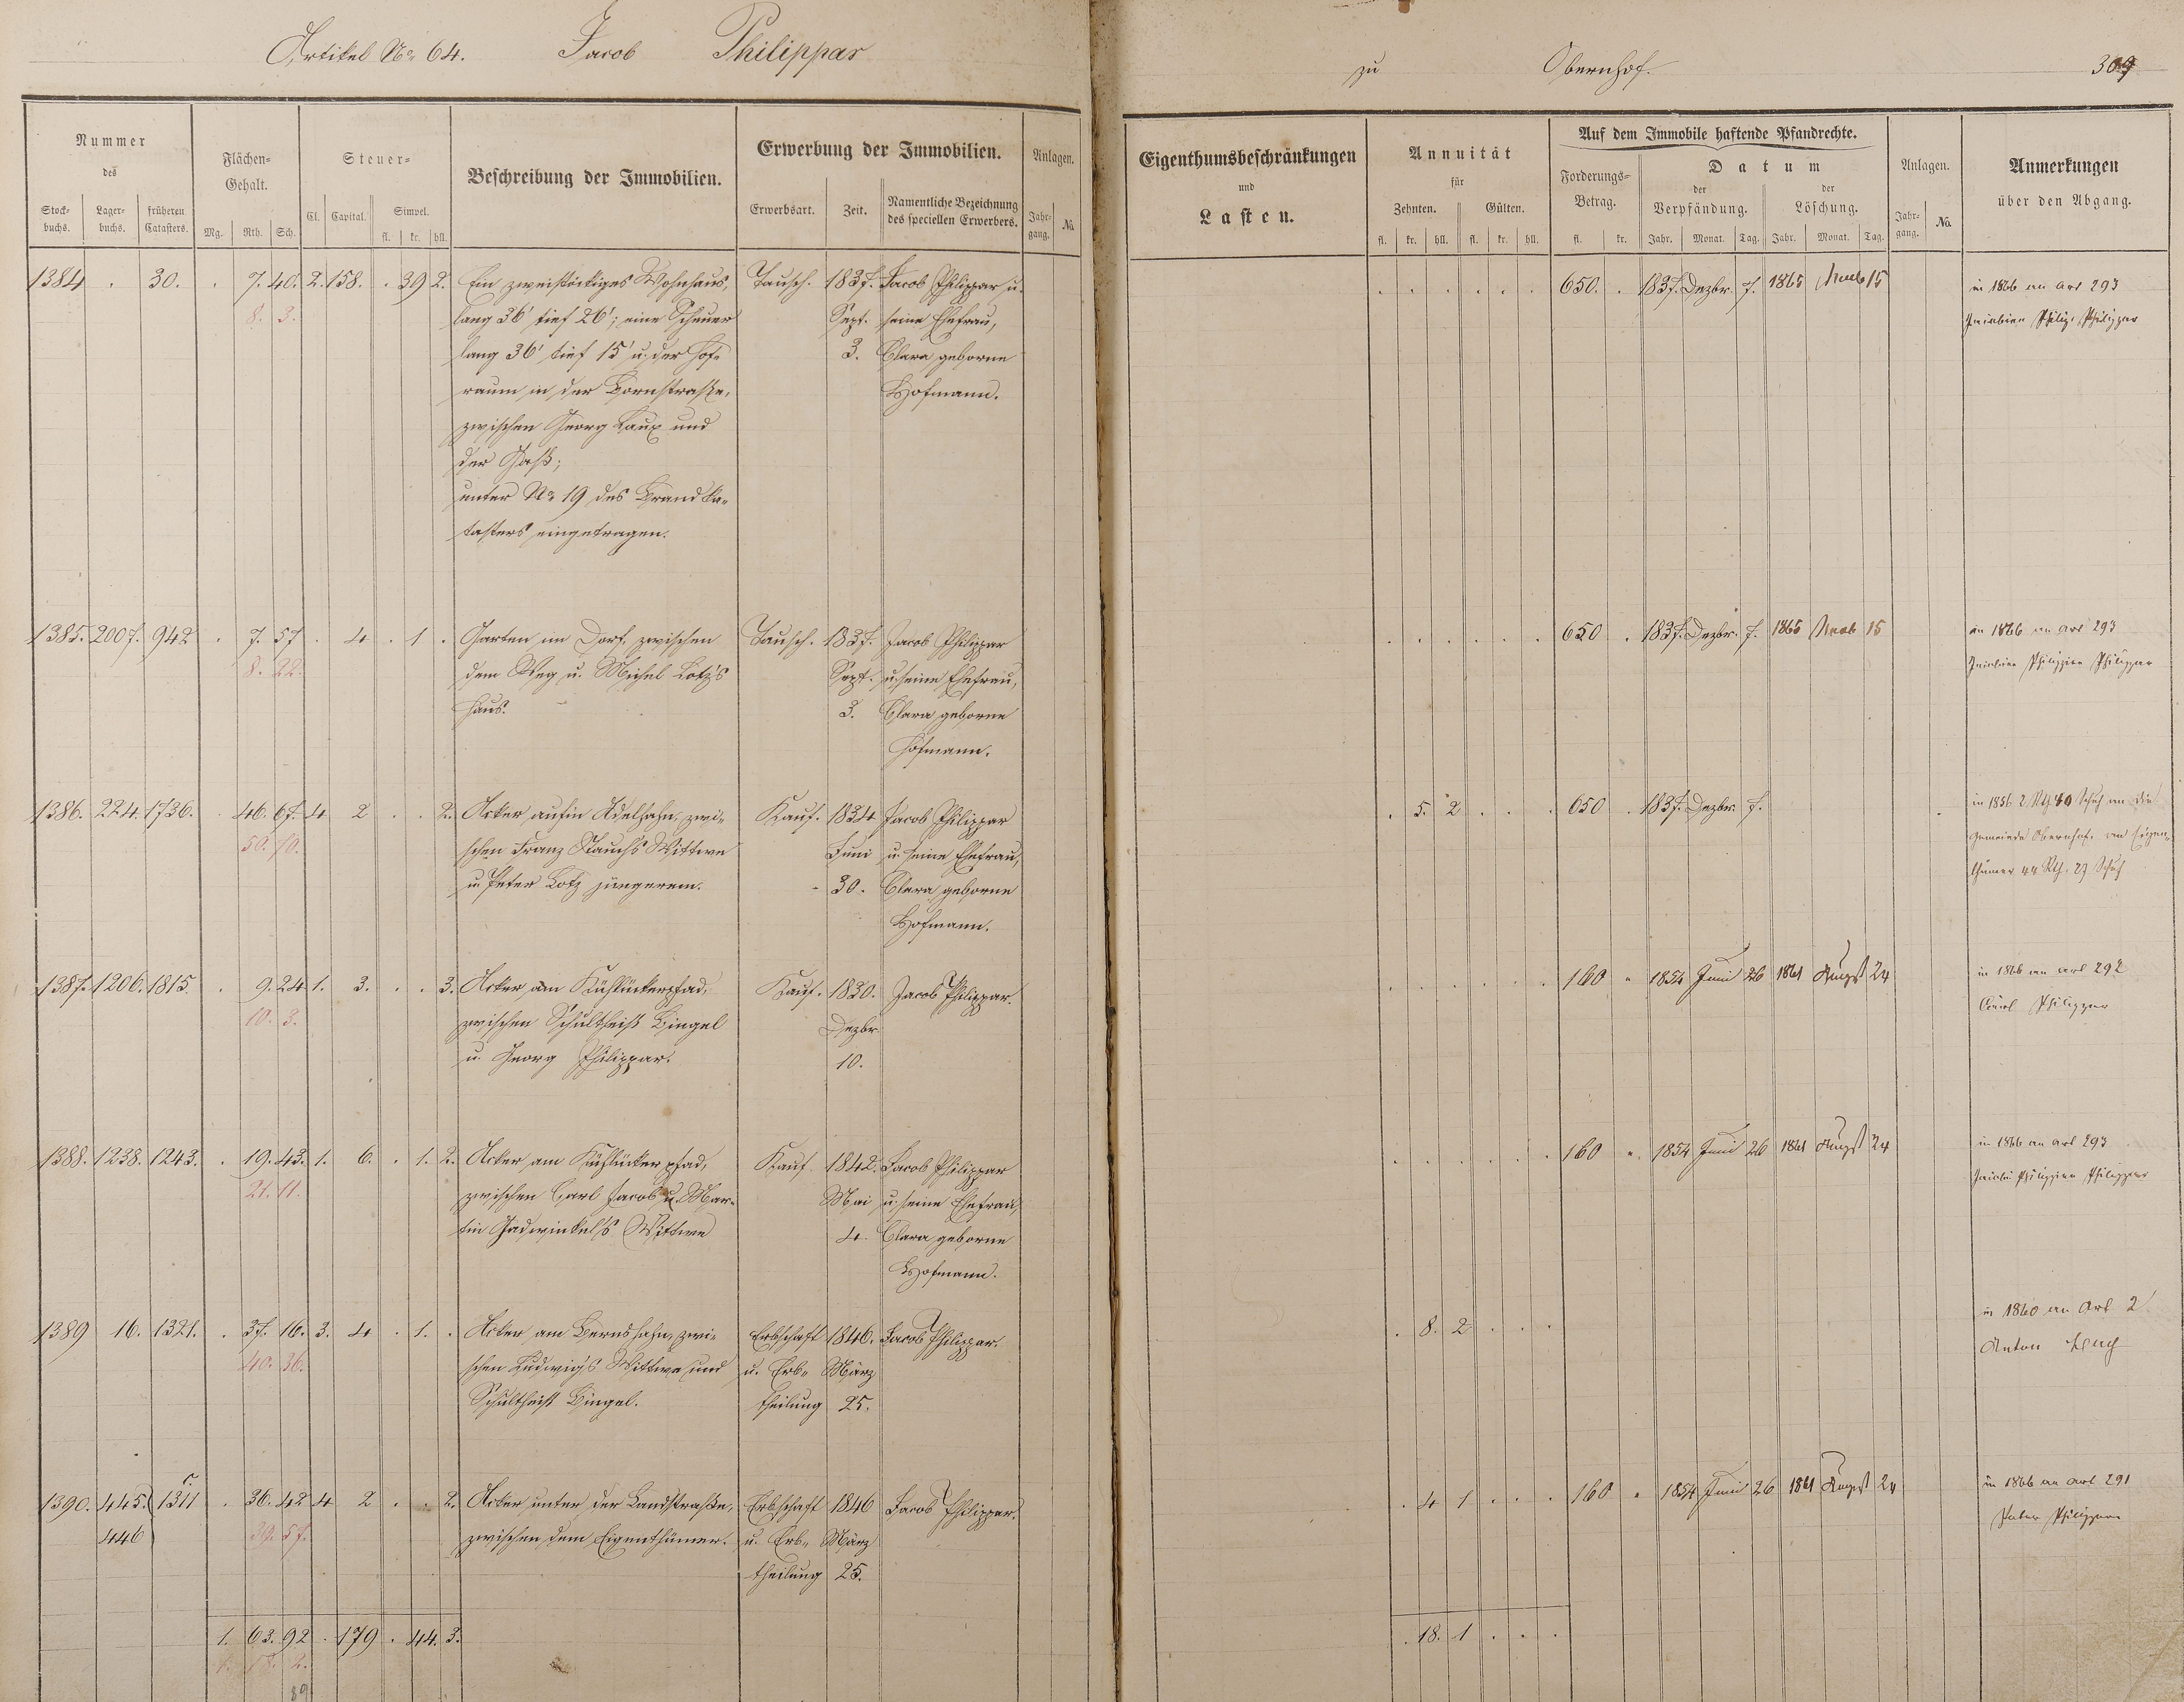 Artikel No. 64. Jacob Philippar
zu Obernhof. 309
Nummer
des
Stock-
buchs.
Lager-
buchs.
früheren
Catasters.
Flächen-
Gehalt.
Mg. Rth. Sch.
Steuer-
Cl. Capital. Simpel.
fl. kr. hll.
Beschreibung der Immobilien.
Erwerbung der Immobilien.
Erwerbsart. Zeit. Namentliche Bezeichnung
des speciellen Erwerbers.
Anlagen.
Jahr-
gang. No.
Eigenthumsbeschränkungen
und
Lasten.
Annuität
für
Zehnten. Gülten.
fl. kr. hll. fl. kr. hll.
Auf dem Immobile haftende Pfandrechte.
Forderungs-
Betrag.
fl. kr.
Datum
der
Verpfändung.
der
Löschung.
Jahr. Monat. Tag. Jahr. Monat. Tag.
Anlagen.
Jahr-
gang. No.
Anmerkungen
über den Abgang.
1384 . 30. . 7. 40. 2. 158. . 39 2.
8. 3.
Ein zweistöckiges Wohnhaus,
lang 36' tief 26'; eine Scheuer
lang 36' tief 15' u. der Hof-
raum in der Bornstraße,
zwischen Georg Laux und
der Gaß;
unter No. 19 des Brandka-
tasters eingetragen.
Tausch. 1837. Sept. 3.
Jacob Philippar u.
seine Ehefrau,
Clara geborne
Hofmann.
650. . 1837. Dezbr. 7. 1865 15
in 1866 an Art 293
Philippar
1385. 2007. 942 . 7. 57 . 4 . 1 .
8. 22.
Garten im Dorf, zwischen
dem Weg u. Michel Lotz's
Haus.
Tausch. 1837. Sept. 3.
Jacob Philippar
u. seine Ehefrau,
Clara geborne
Hofmann.
650 . 1837. Dezbr. 7. 1865 15
in 1866 an Art 293
Philippine Philippar
1386. 224. 1736. . 46. 67. 4. 2 . . 2.
50. 70.
Acker aufm Adelhahn, zwi-
schen Franz Stauch's Wittwe
u. Peter Lotz jüngerem.
Kauf. 1834 Juni 30.
Jacob Philippar
u. seine Ehefrau,
Clara geborne
Hofmann.
. 5. 2 . . . 650 . 1837. Dezbr. 7.
in 1856 2 Rth 40 Schuh an die
Gemeinde Obernhof, an Eigen-
thümer 44 Rth. 27 Schuh
1387. 1206. 1815. . 9. 24 1. 3. . . 3.
10. 3.
Acker am Kühlückerpfad,
zwischen Schultheiß Bingel
u. Georg Philippar.
Kauf. 1830. Dezbr. 10.
Jacob Philippar.
160 " 1854 Juni 26 1861 August 24
in 1866 an Art 292
Carl Philippar
1388. 1238. 1243. . 19. 43. 1. 6. . 1. 2.
21. 11.
Acker am Kühlückerpfad,
zwischen Carl Jacob u. Mar-
tin Gadwinkel's Wittwe
Kauf. 1842. Mai 4.
Jacob Philippar
u. seine Ehefrau,
Clara geborne
Hofmann.
160 " 1854 Juni 26 1861 August 24
in 1866 an Art 293
Philippine Philippar
1389 16. 1321. . 37. 16. 3. 4 . 1. .
40. 36.
Acker am Bernshahn, zwi-
schen Ludwig's Wittwe und
Schultheiß Bingel.
Erbschaft
u. Erb-
theilung
1846. März 25.
Jacob Philippar.
. 8. 2 . . .
in 1860 an Art 2
Anton
1390. 445. 1311 . 36. 42 4 2 . . 2.
446 39. 57.
Acker unter der Landstraße,
zwischen dem Eigenthümer.
Erbschaft
u. Erb-
theilung
1846 März 25.
Jacob Philippar.
. 4 1 . . . 160 " 1854 Juni 26 1861 August 24
in 1866 an Art 291
Peter Philippar
1. 63. 92 . 179 . 44. 3.
. 18. 1 . . .
89